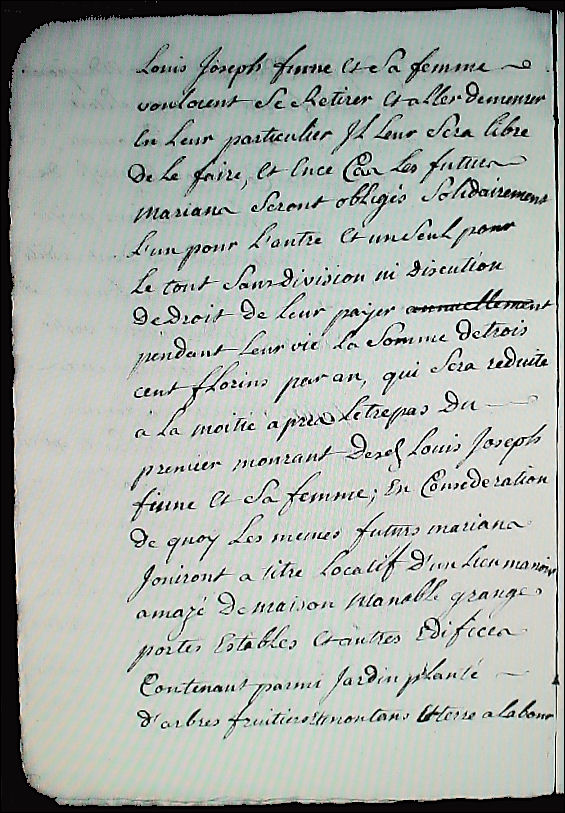 Louis Joseph finne et Sa femme
vouloient Se Retirer et aller demeurer
En Leur particulier Il Leur Sera libre
de Le faire, et Ence Cas Les futurs
marians Seront obligés Solidairement
L'un pour L'autre et un Seul pour
Le tout Sans division ni Discution
De Droit de Leur payer annuellement
pendant Leur vie La Somme de trois
cent florins par an, qui Sera reduite
a La moitié apres Le trepas Du
premier mourant Desd Louis Joseph
finne et Sa femme; En Consideration
de quoy Les memes futurs marians
Joniront a titre Locatif D'un Lieu manoir
amazé De maison manable granges
portes Estables et autres Edifices
Contenant parmi Jardin planté
d'arbres fruitiers et montans terre a labour